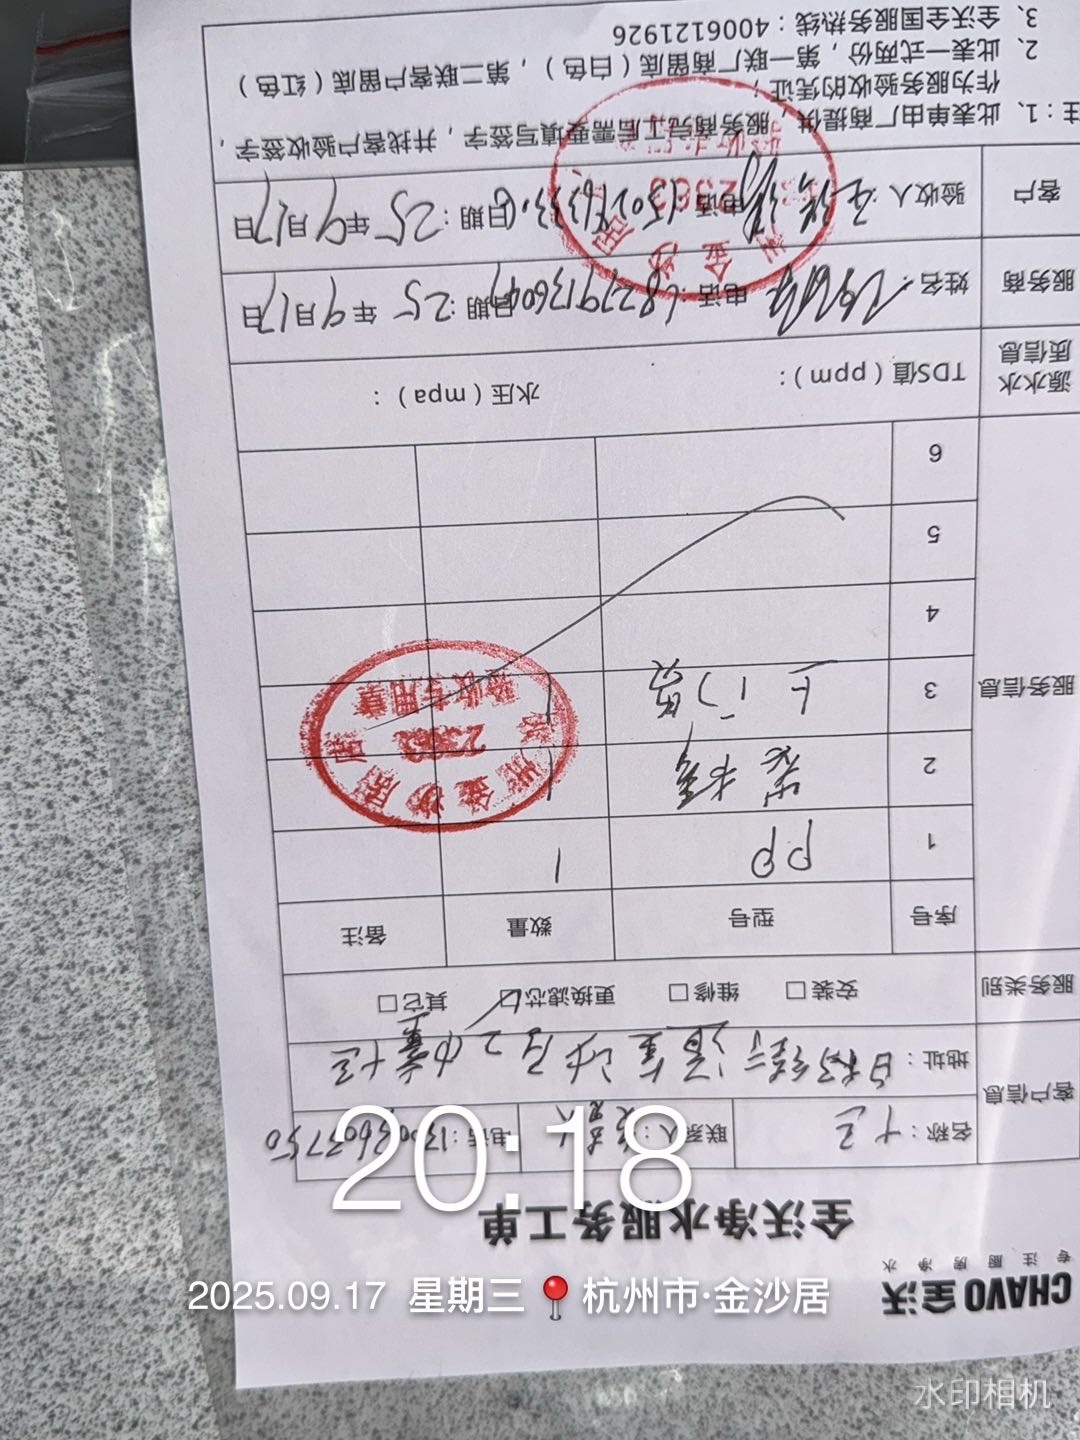 CHAVO全沃
专 注 厨 房 净 水
全沃净水服务工单
客户信息
名称：十足
联系人：
电话：13003603750
地址：白杨街道金沙居2幢十足
服务类别
安装□ 维修□ 更换滤芯☑ 其它□
服务信息
序号 型号 数量 备注
1 PP 1
2 1
3 上门费 1
4
5
6
源水水质信息
TDS值（ppm）： 水压（mpa）：
服务商
姓名： 电话： 日期：25年9月17日
客户
验收人： 电话： 日期：25年9月17日
注：1、此表单由厂商提供，服务商完工后需要填写签字，并找客户验收签字，
作为服务验收的凭证；
2、此表一式两份，第一联厂商留底（白色），第二联客户留底（红色）
3、全沃全国服务热线：4006121926
杭州金沙居店
验收专用章
20:18
2025.09.17 星期三 杭州市·金沙居
水印相机